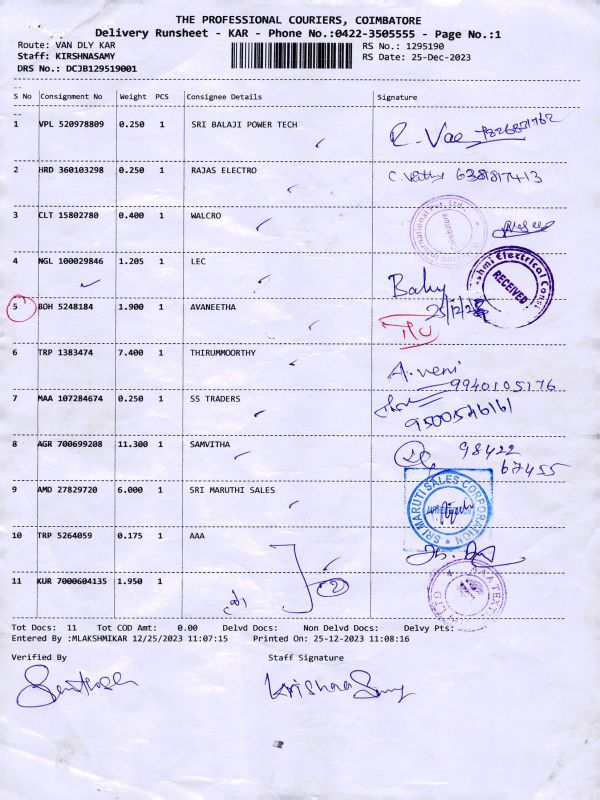 THE PROFESSIONAL COURIERS, COIMBATORE
Delivery Runsheet - KAR - Phone No.:0422-3505555 - Page No.:1
Route: VAN DLY KAR RS No.: 1295190
Staff: KIRSHNASAMY RS Date: 25-Dec-2023
DRS No.: DCJB129519001
S No Consignment No Weight PCS Consignee Details Signature
1 VPL 520978809 0.250 1 SRI BALAJI POWER TECH
2 HRD 360103298 0.250 1 RAJAS ELECTRO 6381817413
3 CLT 15802780 0.400 1 WALCRO
4 NGL 100029846 1.205 1 LEC
RECEIVED
Baky
25/12/23
5 BOH 5248184 1.900 1 AVANEETHA
6 TRP 1383474 7.400 1 THIRUMMOORTHY
A. veni
9940105176
7 MAA 107284674 0.250 1 SS TRADERS
9500546161
8 AGR 700699208 11.300 1 SAMVITHA
98422
67455
9 AMD 27829720 6.000 1 SRI MARUTHI SALES
SRI MARUTI SALES CORPORATION
10 TRP 5264059 0.175 1 AAA
11 KUR 7000604135 1.950 1
2
Tot Docs: 11 Tot COD Amt: 0.00 Delvd Docs: Non Delvd Docs: Delvy Pts:
Entered By :MLAKSHMIKAR 12/25/2023 11:07:15 Printed On: 25-12-2023 11:08:16
Verified By Staff Signature
Santhosh Krishna Samy